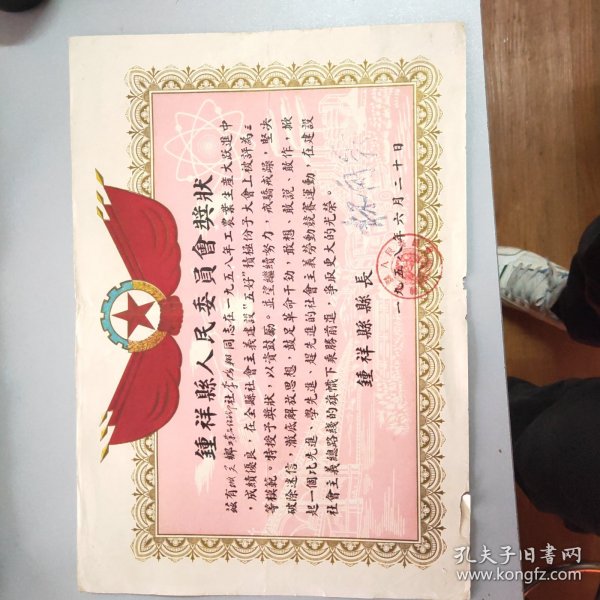 鍾祥縣人民委員會獎狀
茲有 鄉 社李 同志在一九五八年工農業生產大跃進中
，成績優良，在全縣社會主义建設“五好”積極份子大會上被評為
等模範。特授予獎狀，以資鼓勵。並望繼續努力，戒驕戒躁，堅决
破除迷信，澈底解放思想，鼓足革命干劲，敢想、敢說、敢作，掀
起一個比先進、學先進、趕先進的社會主义勞動競賽運動，在建設
社會主义總路綫的旗幟下乘勝前進，爭取更大的光榮。
鍾祥縣縣長
一九五八年六月二十日
孔夫子旧書网
www.kongfz.com